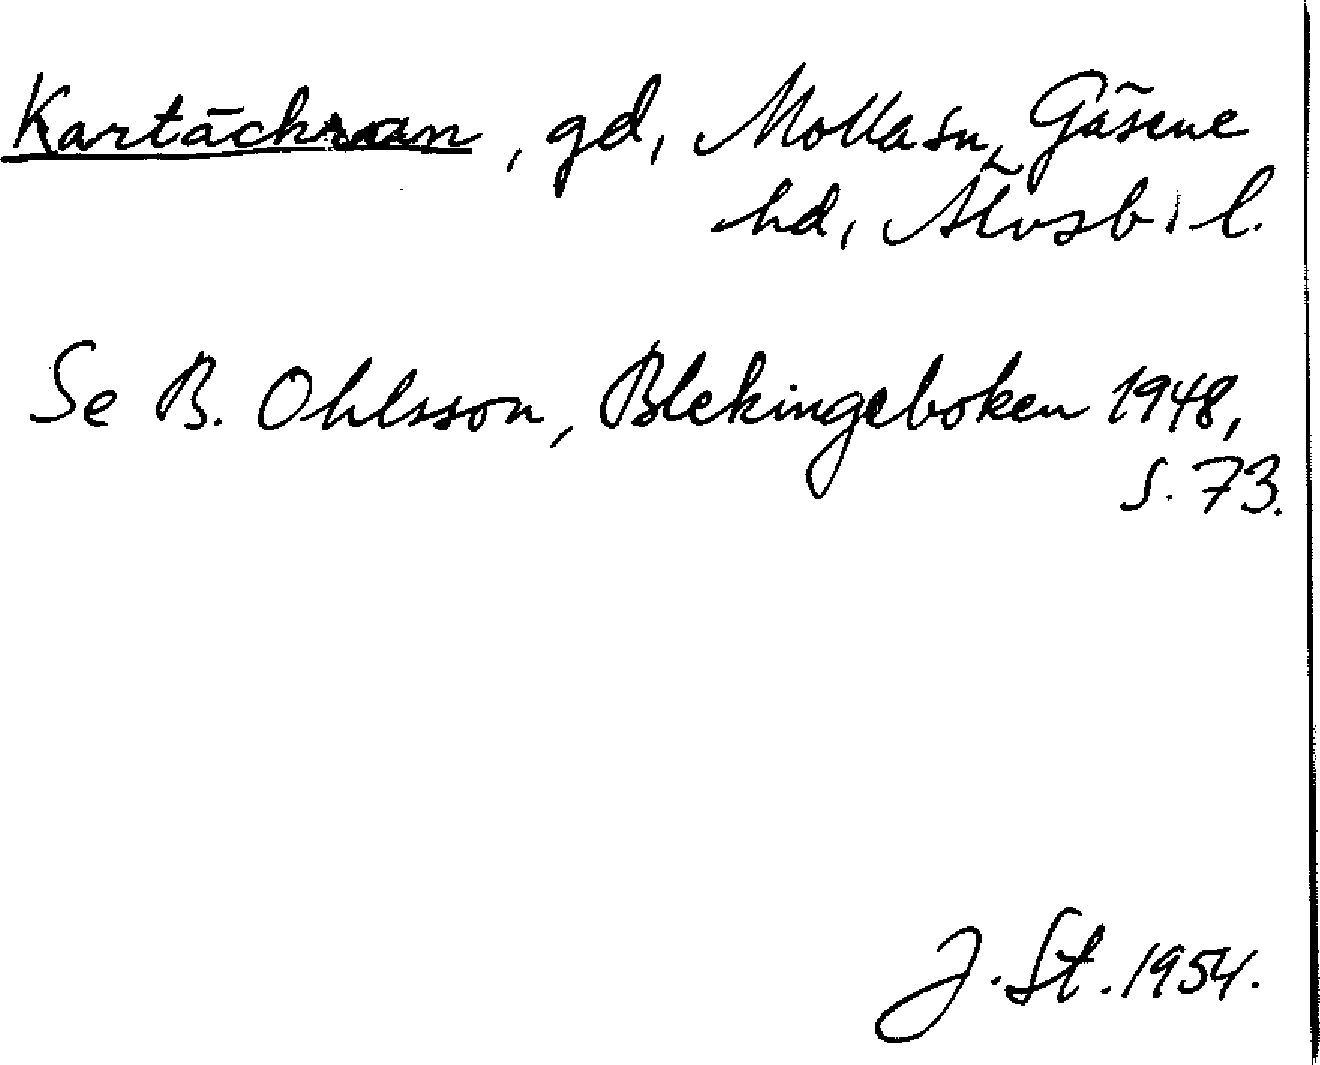 Kartäckran, gd, Mollasn, Gäsene
hd, Älvsb. l.
Se B. Ohlsson, Blekingeboken 1948,
s. 73.
J. St. 1954.